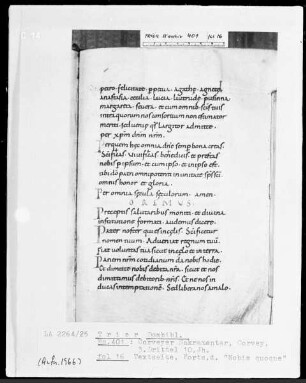 TRIER Dombibl. 401 fol 16
C - 14
petro. felicitate. ppetua. agathe. agnete
anastasia. cecilia. lucia.
margareta
intra quorum nos consortium non estimator
meriti. sed
per xpm dnm nrm.
Per quem hec omnia dne semp bona creas.
Scificas. uiuificas. benedicis. et prestas
nobis p ipsum. et cum ipso. et in ipso est
tibi do patri omnipotenti in unitate spi sci
omnis honor et gloria.
Per omnia secula seculorum. amen
OREMUS
Preceptis salutaribus moniti. et diuina
institutione formati. audemus dicere.
Pater noster qui es in celis. Scificetur
nomen tuum. Adueniat regnum tuu.
fiat uoluntas tua sicut in celo. et in terra.
Panem nrm cotidianum da nobis hodie.
Et dimitte nobis debita nra. sicut et nos
dimittimus debitoribus nris. Et ne in
ducas in temptatione. Sed libera nos a malo.
LA 2264/25
Trier Dombibl.
Hs. 401: Corveyer Sakramentar, Corvey,
3. Drittel 10. Jh.
fol 16
(Aufn. 1966)